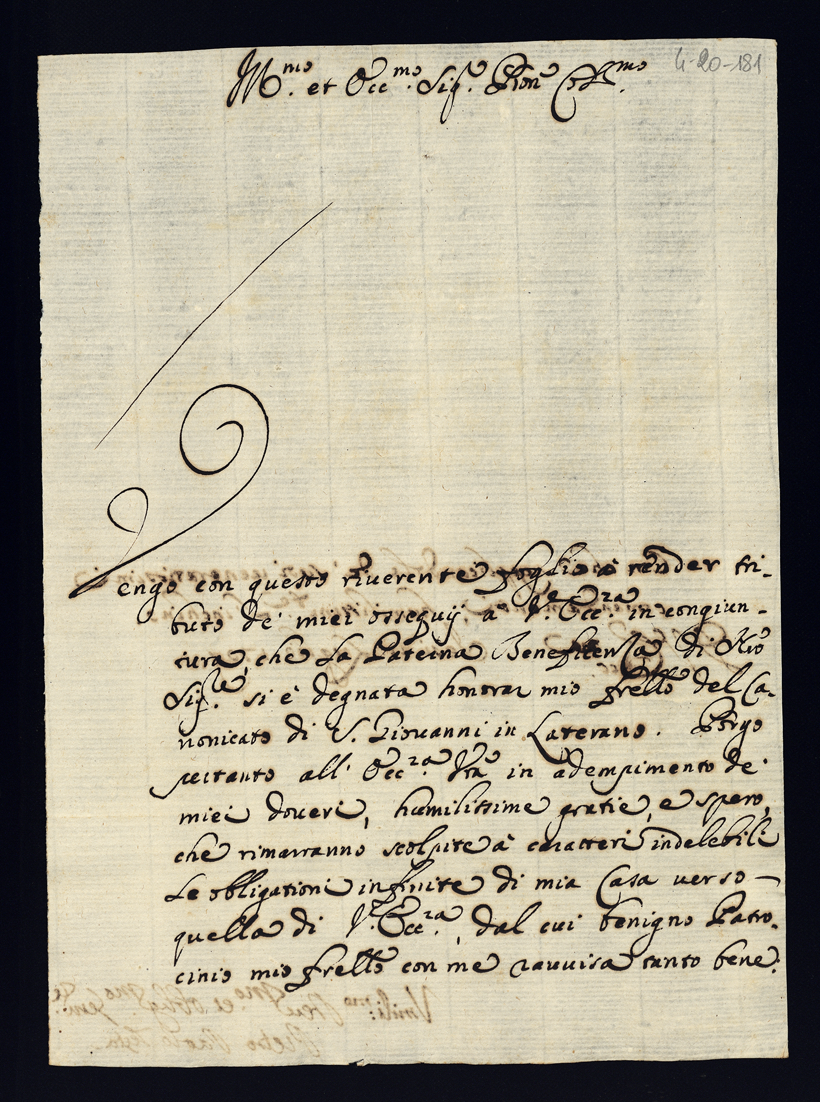 Ill.mo et Ecc.mo Sig.e Pron Col.mo
4-20-181
Vengo con questo riverente foglio à render tri-
buto de' miei ossequij à V. Ecc.ra in congiun-
tura, che la Paterna Beneficenza di Nro
Sig.re si è degnata honorar mio frello del Ca-
nonicato di S. Giovanni in Laterano. Porgo
pertanto all' Ecc.ra Vra in adempimento de'
miei doveri, humilissime gratie, e spero,
che rimarranno scolpite à caratteri indelebili
le obligationi infinite di mia Casa verso
quella di V. Ecc.ra, dal cui benigno Patro-
cinio mio frello con me ravvisa tanto bene.